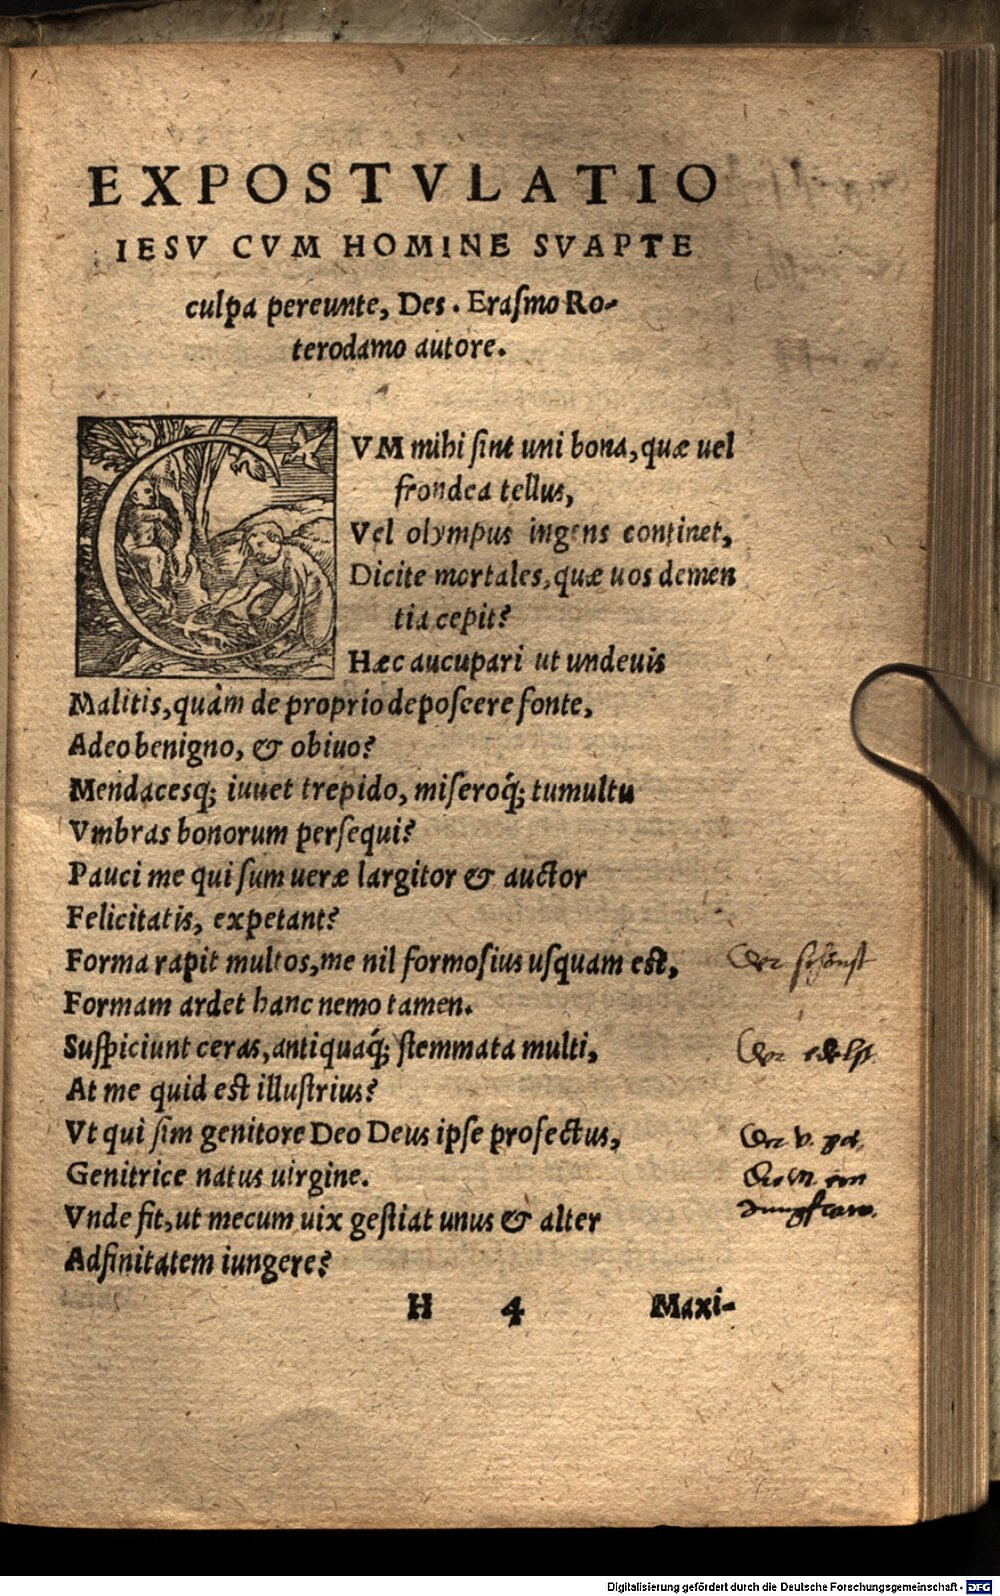 EXPOSTVLATIO
IESV CVM HOMINE SVAPTE
culpa pereunte, Des. Eraſmo Ro-
terodamo autore.
CVM mihi ſint uni bona, quæ uel
frondea tellus,
Vel olympus ingens continet,
Dicite mortales, quæ uos demen
tia cepit?
Hæc aucupari ut undeuis
Malitis, quàm de proprio depoſcere fonte,
Adeo benigno, & obiuo?
Mendacesq; iuuet trepido, miſeroq́; tumultu
Vmbras bonorum perſequi?
Pauci me qui ſum ueræ largitor & auctor
Felicitatis, expetant?
Forma rapit multos, me nil formoſius uſquam est,
Der ſchönſt
Formam ardet hanc nemo tamen.
Suſpiciunt ceras, antiquaq́; ſtemmata multi,
Der edelſt
At me quid est illuſtrius?
Vt qui ſim genitore Deo Deus ipſe profectus,
Genitrice natus uirgine.
Vnde fit, ut mecum uix geſtiat unus & alter
Adfinitatem iungere?
H 4 Maxi-
Digitalisierung gefördert durch die Deutsche Forschungsgemeinschaft - DFG